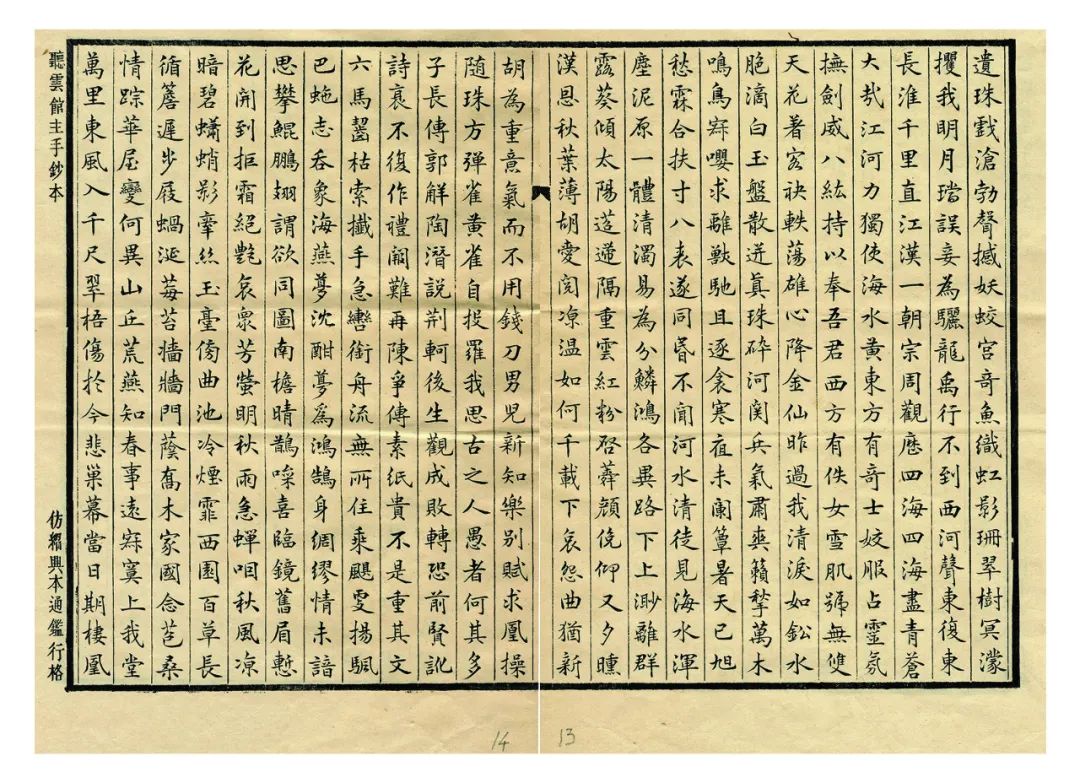 遺珠戲滄勃聲撼妖蛟宮奇魚織虹影珊翠樹冥濛
攫我明月璫誤妾為驪龍禹行不到西河聲東復東
長淮千里直江漢一朝宗周觀歷四海四海盡青蒼
大哉江河力獨使海水黃東方有奇士姣服占靈氛
撫劍威八紘持以奉吾君西方有佚女雪肌號無雙
天花著宓袂軼蕩雄心降金仙昨過我清淚如鈆水
脃滴白玉盤散迸真珠碎河関兵氣肅爽籟拏萬木
鳴鳥寂嚶求離獸馳且逐衾寒夜未闌簟暑天已旭
愁霖合扶寸八表遂同昬不聞河水清徒見海水渾
塵泥原一體清濁易為分鱗鴻各異路下上渺離群
露葵傾太陽迢遞隔重雲紅粉啓蕣顏俛仰又夕曛
漢恩秋葉薄胡愛閱涼温如何千載下哀怨曲猶新
胡為重意氣而不用錢刀男兒新知樂別賦求凰操
隨珠方彈雀黃雀自投羅我思古之人愚者何其多
子長傳郭解陶潛說荊軻後生觀成敗轉恐前賢訛
詩衰不復作禮闕難再陳爭傳素紙貴不是重其文
六馬齧枯索攕手急轡銜舟流無所住乘颸揚颿
巴虵志吞象海燕夢沈酣夢為鴻鵠身綢繆情未諳
思攀鯤鵬翅謂欲同圖南檐晴鵲噪喜臨鏡舊眉慙
花開到拒霜絕艷哀眾芳螢明秋雨急蟬咽秋風涼
暗碧蠨蛸影牽絲玉臺傍曲池冷煙霏西園百草長
循簷遲步屐蝸涎莓苔牆牆門蔭喬木家國念苞桑
情踪華屋變何異山丘荒燕知春事遠寂寞上我堂
萬里東風入千尺翠梧傷於今悲巢幕當日期棲凰
聽雲館主手鈔本
仿紹興本通鑑行格
13
14